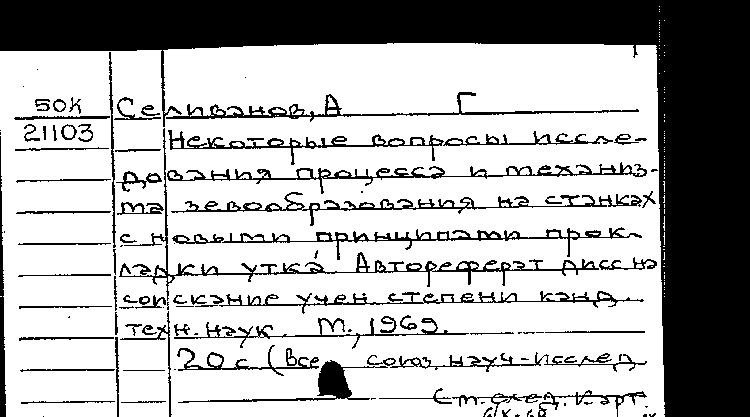 50К Селиванов, А Г
21103 Некоторые вопросы иссле-
дования процесса и механиз-
ма зевообразования на станках
с новыми принципами прок-
ладки утка. Автореферат дисс на
соискание учен. степени канд.
техн. наук. М., 1969.
20 с (Все союз. науч-исслед
См. след. карт.